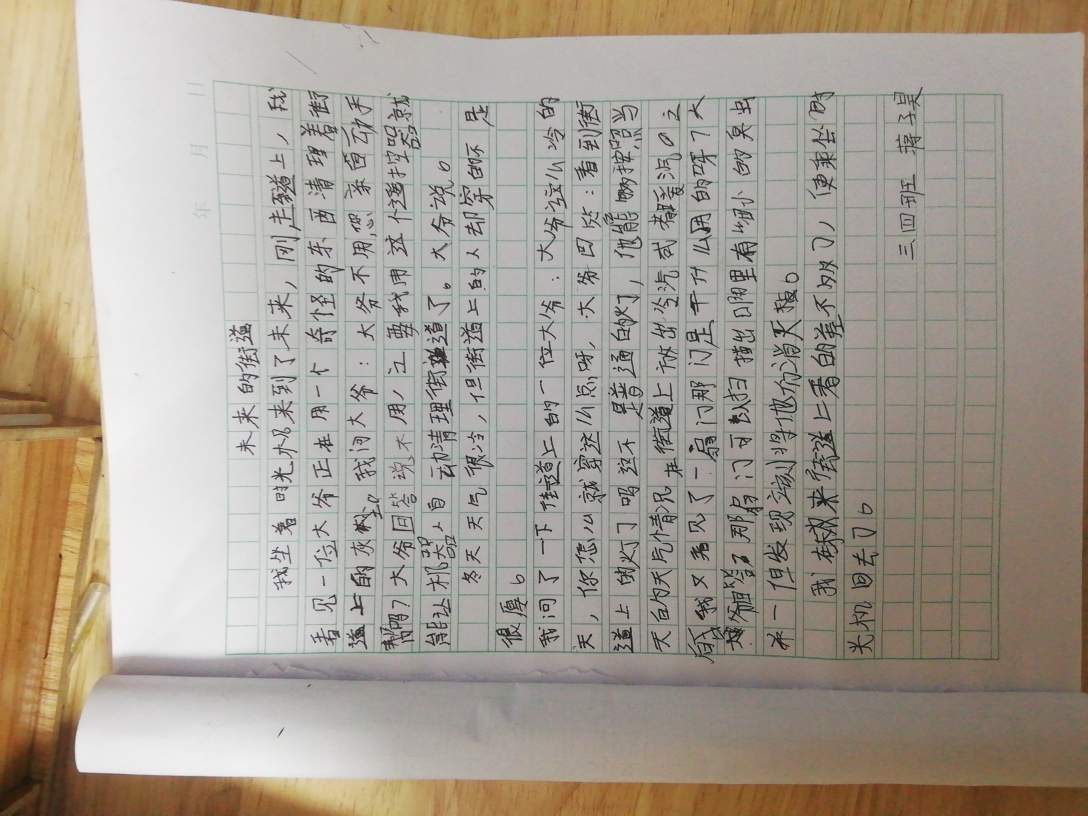 年 月 日
未来的街道
我坐着时光机来到了未来，刚走到道上，我
看见一位大爷正在用一个奇怪的东西清理着街
道上的灰尘。我问大爷：大爷不用您亲自动手
吗？大爷回答说不用，只要我用这个遥控器就
能让机器人自动清理街道了。大爷说。
冬天天气很冷，但街道上的人却穿的不是
很厚。
我问了一下街道上的一位大爷：大爷这么冷的
天，你怎么就穿这么点呀，大爷回答：看到街
道上的灯了吗这不是普通的灯，他能够按照当
天白的天气情况在街道上放出冷汽或者暖汽。之
后我又看见了一扇门那门是干什么用的呀？大
爷回答了那扇门可以扫描出哪里有细小的臭虫
一但发现立刻将他们消灭掉。
我在未来街道上看的差不多了，便乘坐时
光机回去了。
三四班 蒋子昊